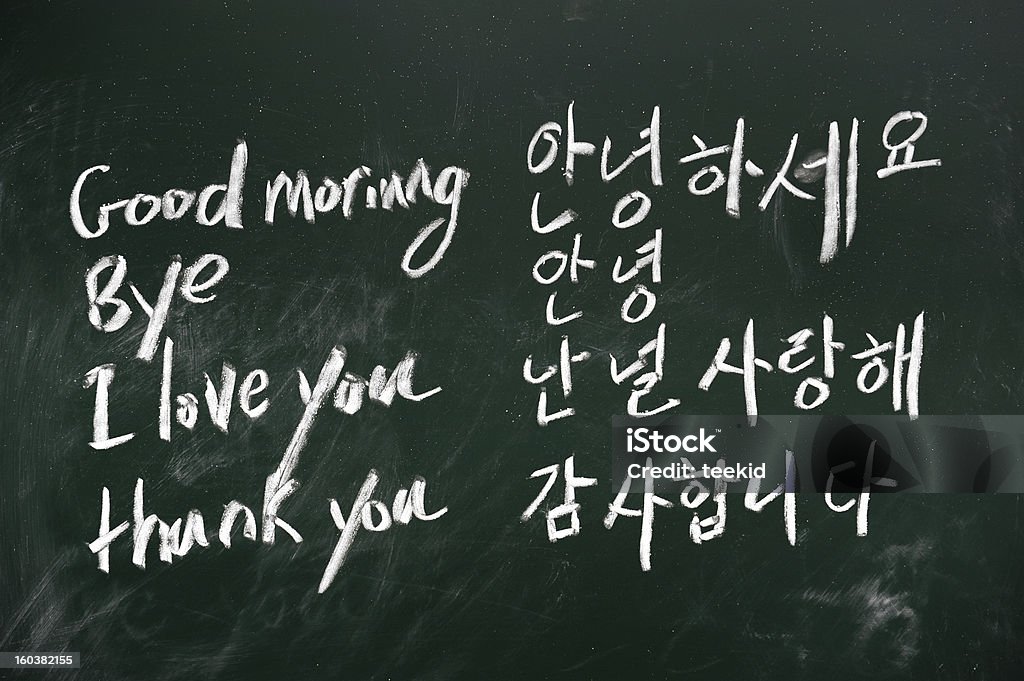 Good morinng 안녕하세요
Bye 안녕
I love you 난 널 사랑해
thank you 감사합니다
iStock™
Credit: teekid
160382155